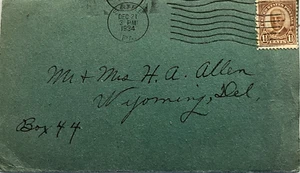 DEC 21
PM
1934
Mr & Mrs H. A. Allen
Wyoming, Del.
Box 44